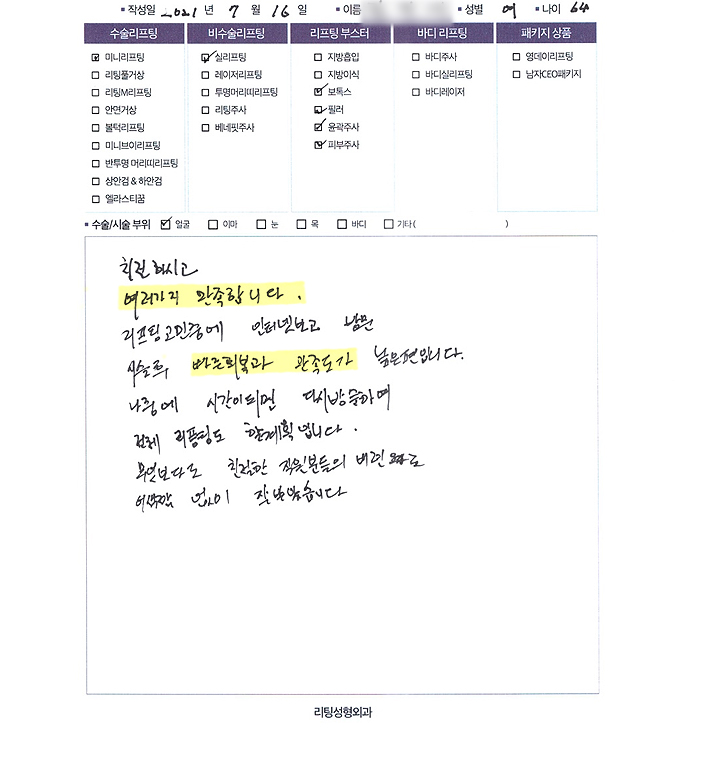 ▪ 작성일 2021 년 7 월 16 일 ▪ 이름 ▪ 성별 여 ▪ 나이 64
수술리프팅 비수술리프팅 리프팅 부스터 바디 리프팅 패키지 상품
☑ 미니리프팅 ☑ 실리프팅 ☐ 지방흡입 ☐ 바디주사 ☐ 영데이리프팅
☐ 리팅풀거상 ☐ 레이저리프팅 ☐ 지방이식 ☐ 바디실리프팅 ☐ 남자CEO패키지
☐ 리팅M리프팅 ☐ 투명머리띠리프팅 ☑ 보톡스 ☐ 바디레이저
☐ 안면거상 ☐ 리팅주사 ☑ 필러
☐ 볼턱리프팅 ☐ 베네핏주사 ☑ 윤곽주사
☐ 미니브이리프팅 ☑ 피부주사
☐ 반투명 머리띠리프팅
☐ 상안검 & 하안검
☐ 엘라스티꿈
▪ 수술/시술 부위 ☑ 얼굴 ☐ 이마 ☐ 눈 ☐ 목 ☐ 바디 ☐ 기타 ( )
친절하시고
여러가지 만족합니다.
리프팅고민중에 인터넷보고
시술후 빠른회복과 만족도가 높은편입니다.
나중에 시간이되면 다시방문하여
리프팅도 할계획입니다.
무엇보다도 친절한 직원분들의 배려
없이 잘받았습니다
리팅성형외과